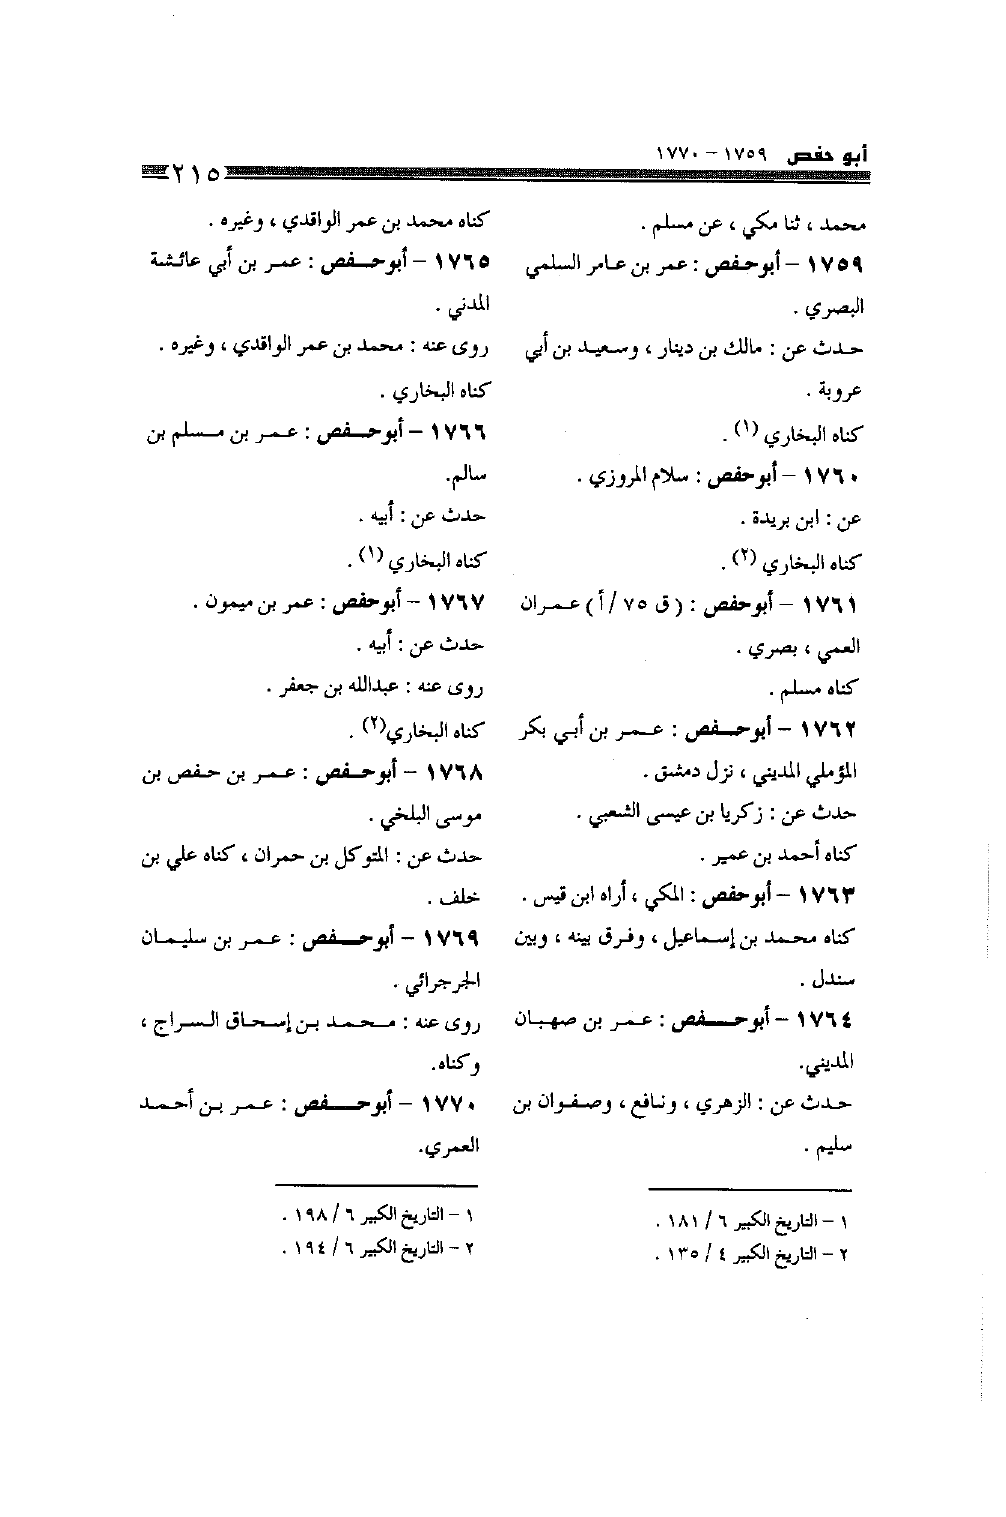 أبو حفص ١٧٥٩ – ١٧٧٠
٢١٥
محمد ، ثنا مكي ، عن مسلم .
١٧٥٩ – أبو حفص : عمر بن عامر السلمي
البصري .
حدث عن : مالك بن دينار ، وسعيد بن أبي
عروبة .
كناه البخاري (١) .
١٧٦٠ – أبو حفص : سلام المروزي .
عن : ابن بريدة .
كناه البخاري (٢) .
١٧٦١ – أبو حفص : (ق ٧٥ /أ) عمران
العمي ، بصري .
كناه مسلم .
١٧٦٢ – أبو حفص : عمر بن أبي بكر
المؤملي المديني ، نزل دمشق .
حدث عن : زكريا بن عيسى الشعبي .
كناه أحمد بن عمير .
١٧٦٣ – أبو حفص : المكي ، أراه ابن قيس .
كناه محمد بن إسماعيل ، وفرق بينه ، وبين
سندل .
١٧٦٤ – أبو حفص : عمر بن صهبان
المديني.
حدث عن : الزهري ، ونافع ، وصفوان بن
سليم .
١ – التاريخ الكبير ٦ / ١٨١ .
٢ – التاريخ الكبير ٤ / ١٣٥ .
كناه محمد بن عمر الواقدي ، وغيره .
١٧٦٥ – أبو حفص : عمر بن أبي عائشة
المدني .
روى عنه : محمد بن عمر الواقدي ، وغيره .
كناه البخاري .
١٧٦٦ – أبو حفص : عمر بن مسلم بن
سالم.
حدث عن : أبيه .
كناه البخاري (١) .
١٧٦٧ – أبو حفص : عمر بن ميمون .
حدث عن : أبيه .
روى عنه : عبدالله بن جعفر .
كناه البخاري(٢) .
١٧٦٨ – أبو حفص : عمر بن حفص بن
موسى البلخي .
حدث عن : المتوكل بن حمران ، كناه علي بن
خلف .
١٧٦٩ – أبو حفص : عمر بن سليمان
الجرجرائي .
روى عنه : محمد بن إسحاق السراج ،
وكناه.
١٧٧٠ – أبو حفص : عمر بن أحمد
العمري.
١ – التاريخ الكبير ٦ / ١٩٨ .
٢ – التاريخ الكبير ٦ / ١٩٤ .